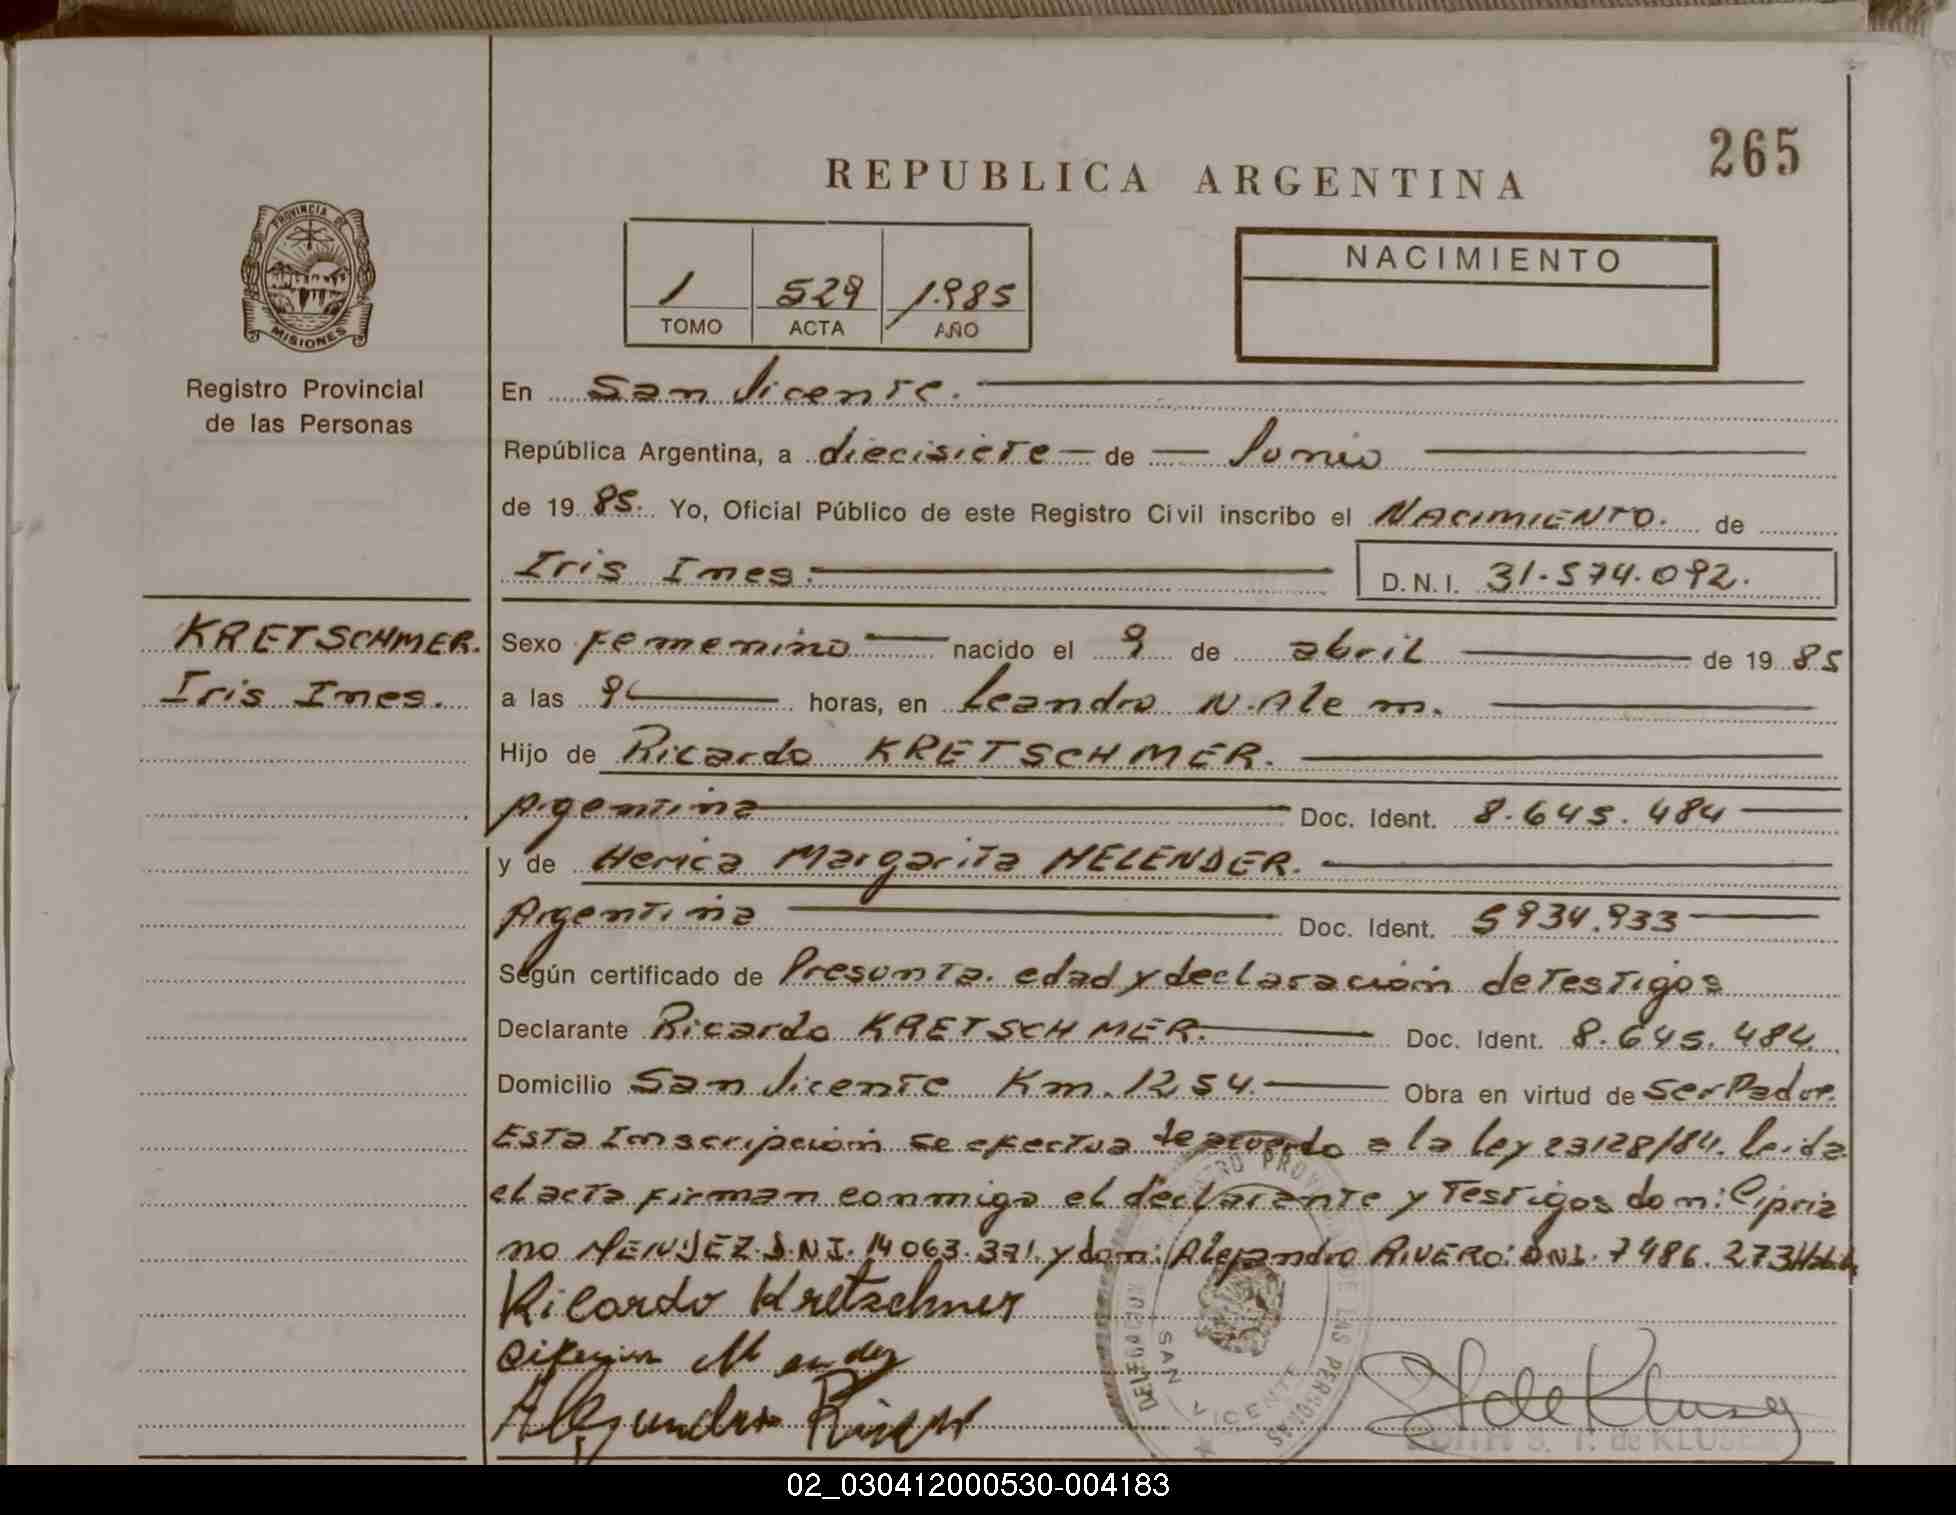 265
REPUBLICA ARGENTINA
PROVINCIA DE
MISIONES
Registro Provincial
de las Personas
1 529 1.985
TOMO ACTA AÑO
NACIMIENTO
En San Vicente.
República Argentina, a diecisiete de Junio
de 19 85. Yo, Oficial Público de este Registro Civil inscribo el NACIMIENTO. de
Iris Ines. D.N.I. 31.574.092.
KRETSCHMER.
Iris Ines.
Sexo Femenino nacido el 9 de abril de 19 85
a las 9 horas, en Leandro N. Alem.
Hijo de Ricardo KRETSCHMER.
Argentina Doc. Ident. 8.645.484
y de Herica Margarita HELENDER.
Argentina Doc. Ident. 5934.933
Según certificado de Presunta. edad y declaración de Testigos
Declarante Ricardo KRETSCHMER. Doc. Ident. 8.645.484.
Domicilio San Vicente Km. 1254. Obra en virtud de ser Padre.
Esta Inscripción se efectua de acuerdo a la Ley 23128/84. Leida
el acta firman conmigo el declarante y Testigos don: Cipria
no MENDEZ D.N.I. 14063.371. y don: Alejandro RIVERO: DNI. 7486.273
Ricardo Kretschmer
Alejandro
DELEGACION SAN VICENTE
DE LAS PERSONAS
S. T. de KLUSE
02_030412000530-004183